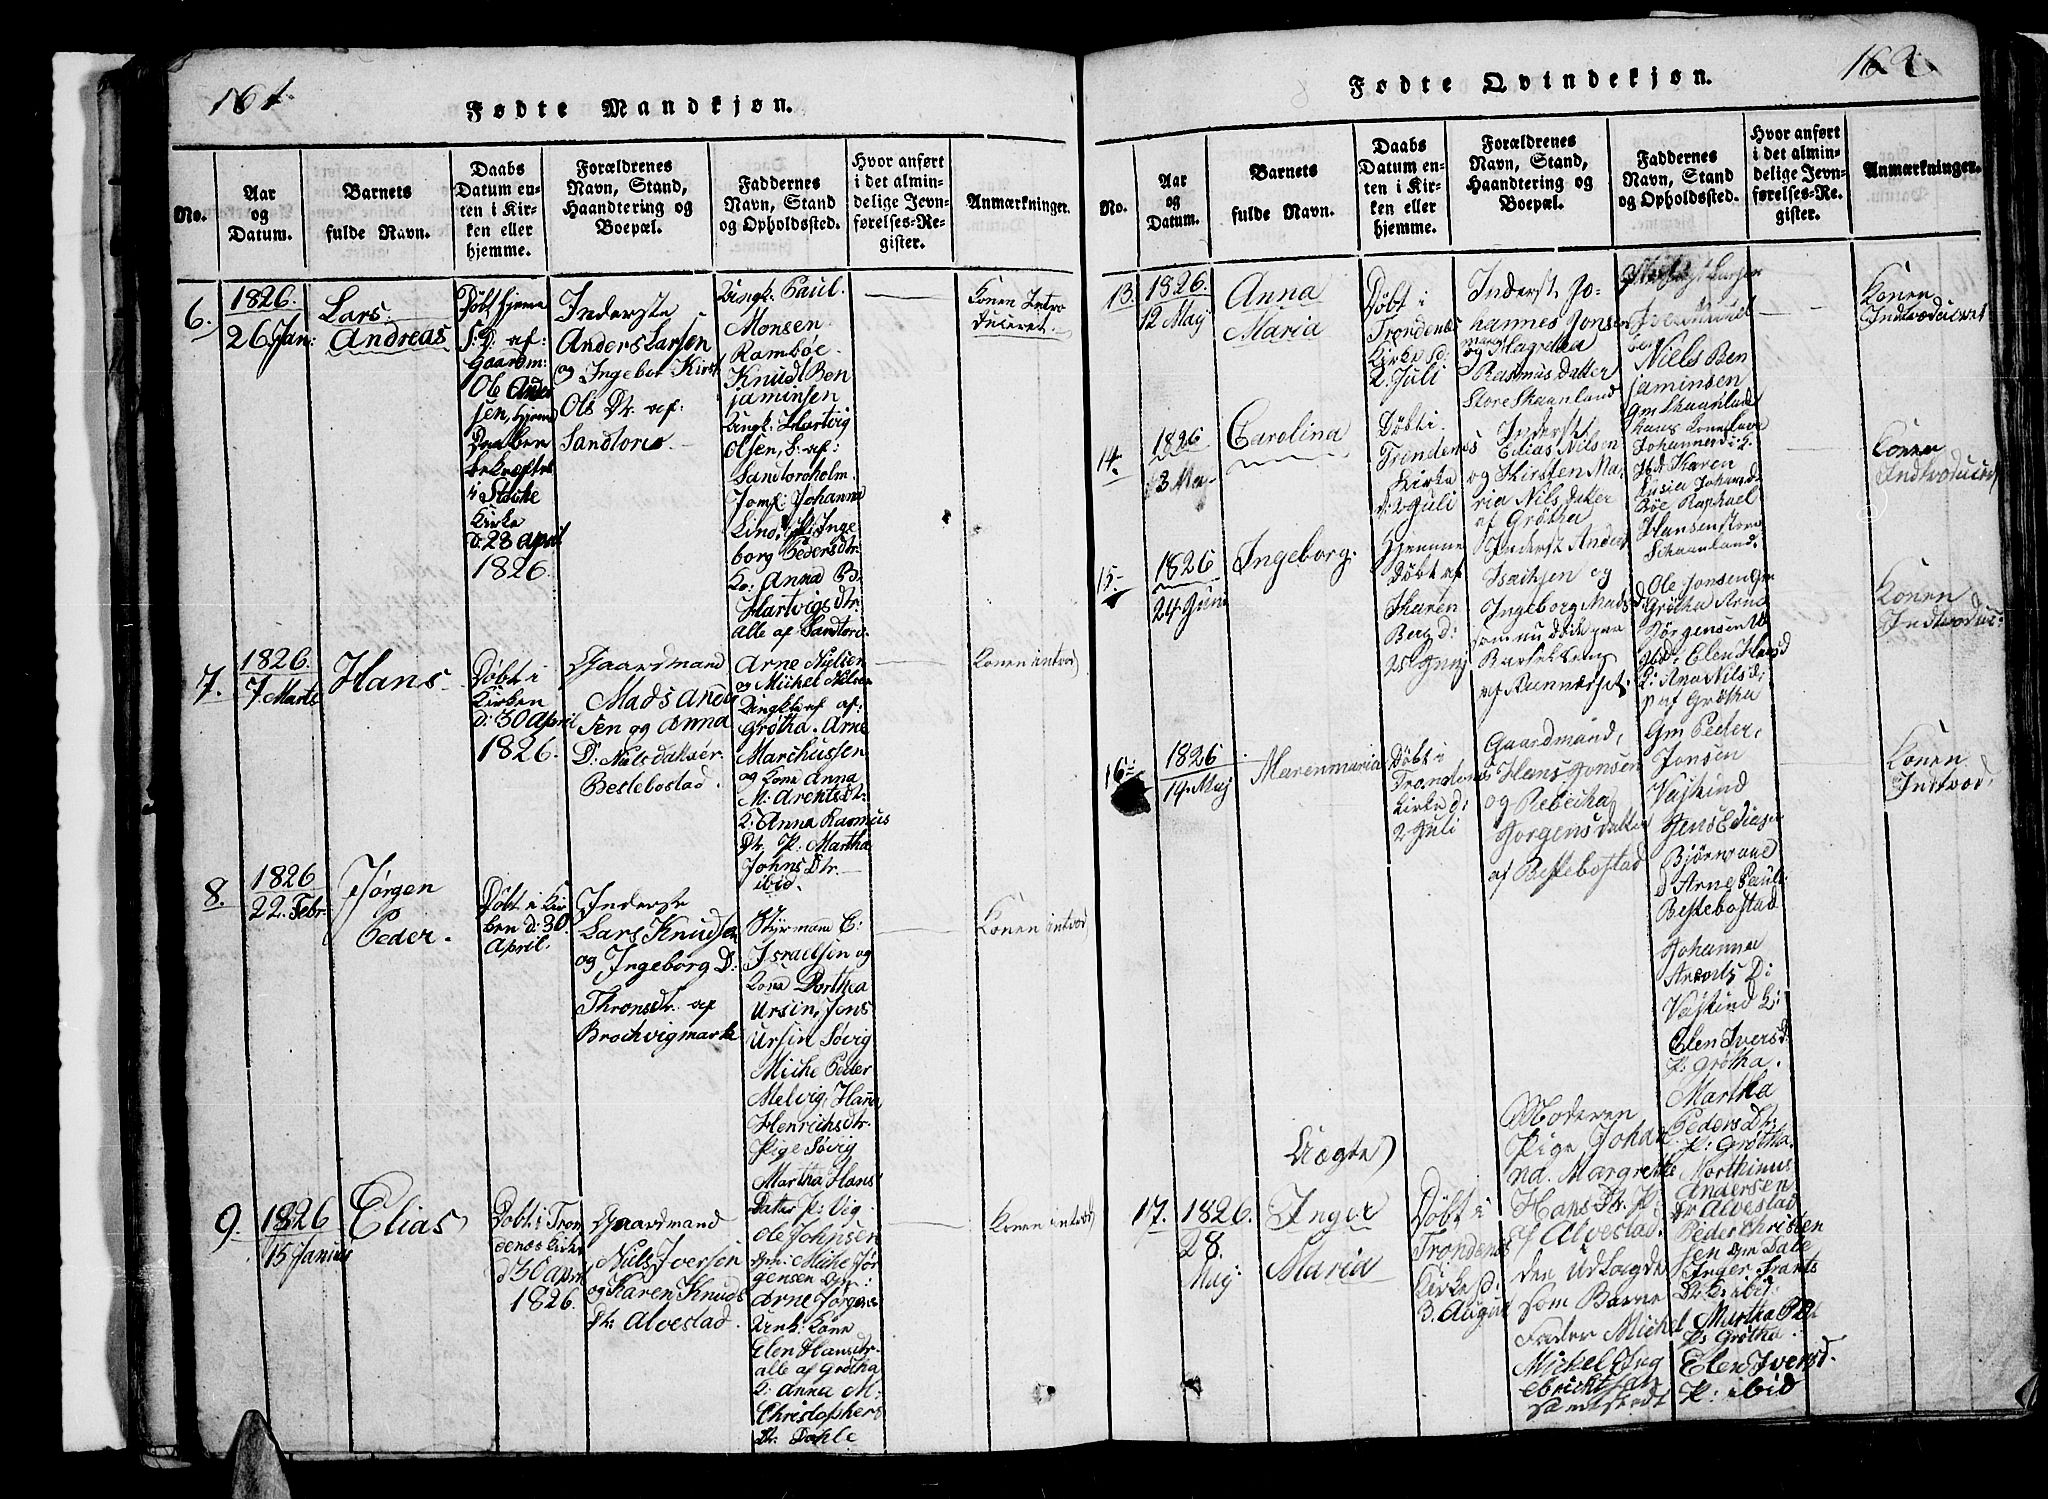 161.
Fødte Mandkjøn.
No.
Aar
og
Datum.
Barnets
fulde Navn.
Daabs
Datum en-
ten i Kir-
ken eller
hjemme.
Forældrenes
Navn, Stand,
Haandtering og
Boepæl.
Faddernes
Navn, Stand
og Opholdssted.
Hvor anført
i det almin-
delige Jevn-
førelses-Re-
gister.
Anmærkninger.
6.
1826.
26 Jan:
Lars
Andreas
Døbt hjeme
S: D. af:
Gaardm:
Ole Ander
sen, hjeme
Daaben
bekræftet
i
Kirke
d: 23 April
1826.
Inderste
Anders Larsen
og Ingebor Kirst
Ols Dr. af:
Sandtorg
Ungk: Paul
Monsen
Ramböe
Knud Ben
jaminsen
Ungk: Hartvig
Olsen, S: af:
Sandtorgholm.
Jomf: Johanna
Lind, P: Inge
borg Pedersdtr.
Ko: Anna B.
Hartvigsdtr.
Alle af Sandtorg.
Konen Intro
duceret.
7.
1826.
7 Marts
Hans
Døbt i
Kirken
d: 30 April
1826.
Gaardmand
Mads Ande
sen og Anna
D: Nielsdatter
Bestebostad.
Arne Nielsen
og Michel Nilsen
Ungkle af:
Grøtha. Arne
Marchussen
og Kone Anna
M: Arentsdtr:
K: Anna Rasmus
Dtr. P: Martha
Johns Dtr.
ibid.
Konen introd)
8.
1826
22. Febr:
Jørgen
Peder.
Døbt i Kir
ken d: 30
April.
Inderste
Lars Knudsen
og Ingeborg D:
Thronsdtr. af
Brochvigmark
Styrmand E:
Israelsen og
Kona Dorthea
Ursin, Jens
Ursin Søvig
Miche Peder
Melvig, Hana
Henrichsdtr.
Pige Søvig
Martha Hans
Dater P: Vig
Konen introd)
9.
1826
15 Janius
Elias
Døbt i Tron
denæs Kirke
d 30 Apr
1826.
Gaardmand
Niels Iversen
og Karen Knuds
Dtr. Alvestad.
Ole Johnsen
Gm: Miche Jør
gensen Gm:
Arne Jørgens
Unk: Kone
Elen Hansdtr.
alle af Grøtha
K: Anna M:
Christophers
Dr. Dahle
Konen introd)
162.
Fødte Qvindekjøn.
No.
Aar
og
Datum.
Barnets
fulde Navn.
Daabs
Datum en-
ten i Kir-
ken eller
hjemme.
Forældrenes
Navn, Stand,
Haandtering og
Boepæl.
Faddernes
Navn, Stand
og Opholdssted.
Hvor anført
i det almin-
delige Jevn-
førelses-Re-
gister.
Anmærkninger.
13.
1826.
12 Maij
Anna
Maria
Døbt i
Trondenæs
Kirke d:
2. Juli
Inderst Jo-
hannes Jonsen
og Magretha
Rasmus datter
Store Skaanland
Larsen
Niels Ben
jaminsen
Gm Skaanland
Konen
Indtroduceret
14.
1826
3 Ma
Carolina
Døbt i
Trondenæs
Kirke
d: 2 Juli
Inderst
Elias Nilsen
og Kirsten Ma
ria Nils datter
af Grøtha
Hans
Johannes
Ibd Karen
Lusia Johansd
Böe Raphael
Hansen store
Schaanland.
Konen
Indtroduceret
15
1826
24 Juni
Ingeborg.
Hjemme
Døbt af
Karen
Berg d:
25 Junij
Inderst Anders
Isachsen og
Ingeborg Mads
som nu døde paa
Barselseng
af
Ole Jonsen Gm
Grøtha Arne
Jørgensen
Ibd: Elen Hansd
K: Ana Nilsd:
P af Grøtha
Konen
Indtroduc:
16
1826
19. Maij
Maren maria
Døbt i
Trondenæs
Kirke d:
2 Juli
Gaardmand,
Hans Jonsen
og Rebecha
Jørgens datter
af Bestebostad
Gm Peder,
Jonsen
Vasskind
Jens Eliasen
Bjørnraae
d Arne Pauls
Bestebostad
Johanna
Arents D:
Vasskind K:
Elen Ivers d:
P: Grøtha.
Martha
Peders Dtr:
P: Grøtha.
Konen
Indtrod.
17.
1826.
28.
Maij
Uægte)
Inger
Maria
Døbt i
Trondenæs
Kirke d:
3. August
Moderen
Pige Johan
na. Margrethe
Hans Dtr. P:
af Alvestad.
den Udlagde
som Barne
Fader Michel
Mickel Ing
ebricktsen
Sandstedt
Morthinus
Andersen
Alvestad
Peder Christen
sen Gm Dale
Inger Frants
Dr. K: ibid:
Martha P Dr
Ps Grøtha.
Elen Ivers d.
P: ibid